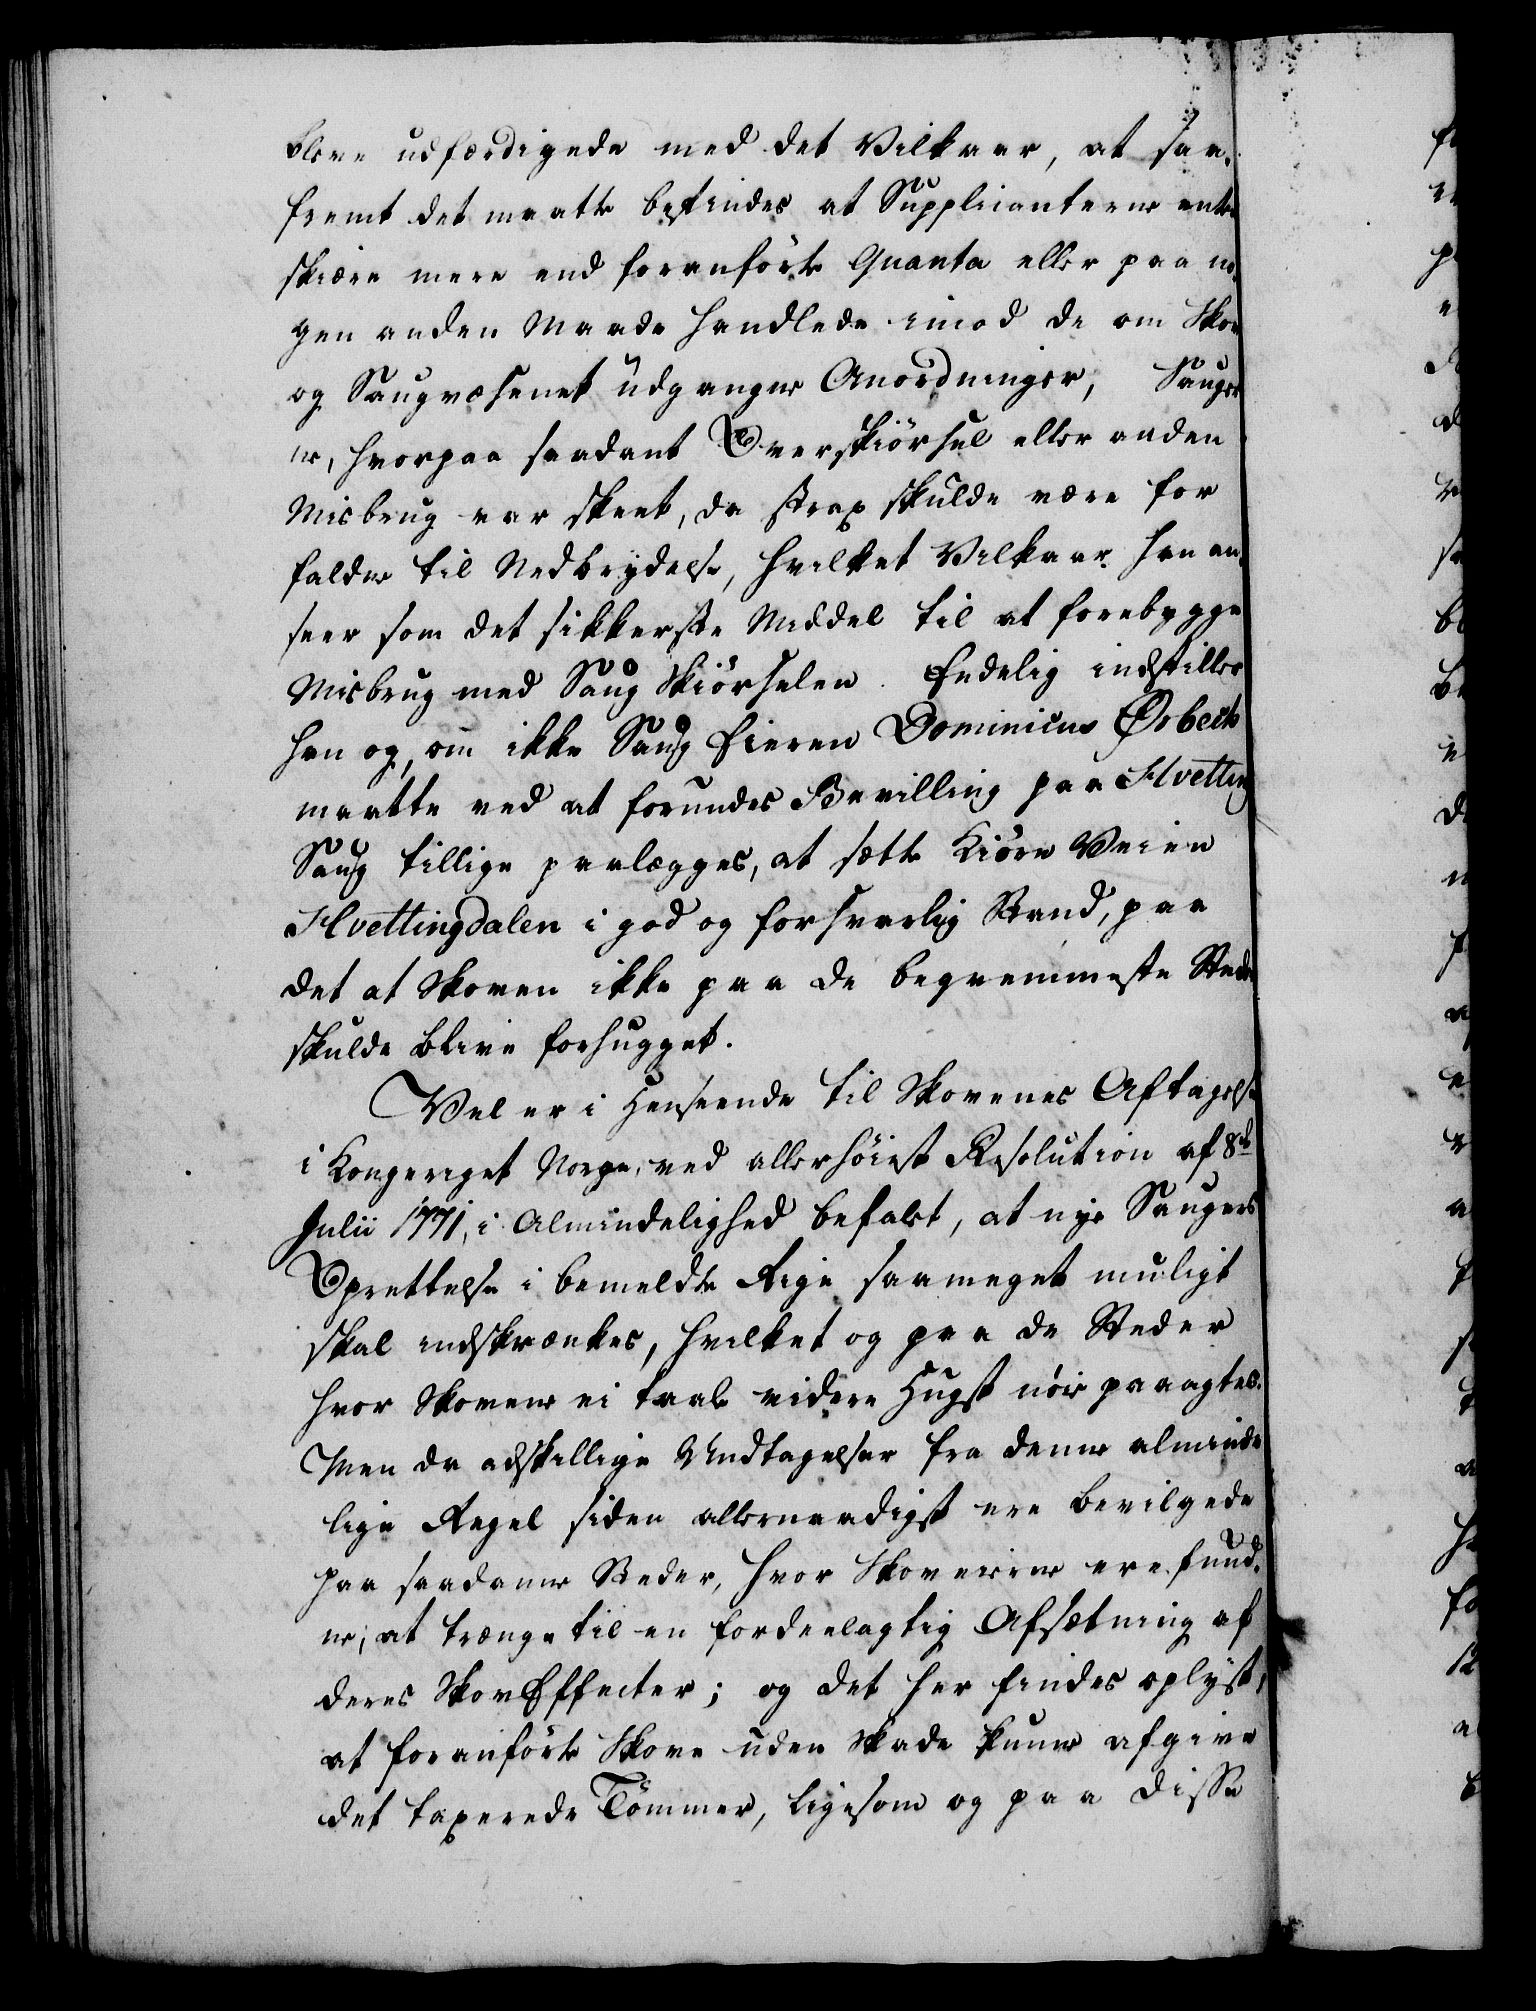 bleve udfærdigede med det Vilkaar, at saa-
fremt det maatte befindes at Supplicanterne enten
skiære mere end foranførte Quanta eller paa no-
gen anden Maade handlede imod de om Skov
og Saugvæsenet udgangne Anordninger, Sauger
ne, hvorpaa saadant Overskiørsel eller anden
Misbrug var skeet, da strax skulde være for
faldne til Nedbrydelse, hvilket Vilkaar han an-
seer som det sikkerste Middel til at forebygge
Misbrug med Saug Skiørselen. Endelig indstiller
han og, om ikke Saug Eieren Dominicus Ørbech
maatte ved at forundes Bevilling paa Hvetting
Saug tillige paalægges, at sætte Kiøre Veien
Hvettingdalen i god og forsvarlig Stand, paa
det at Skoven ikke paa de beqvemmeste Steder
skulde blive forhugget.
Vel er i Henseende til Skovenes Aftagelse
i Kongeriget Norge, ved allerhøiest Resolution af 8de
Julii 1771, i Almindelighed befalet, at nye Saugers
Oprettelse i bemeldte Rige saameget muligt
skal indskrænkes, hvilket og paa de Steder
hvor Skovene ei taale videre Hugst nøie paaagtes.
Men da adskillige Undtagelser fra denne alminde
lige Regel siden allernaadigst ere bevilgede
paa saadanne Steder, hvor Skoveierne ere fund-
ne, at trænge til en fordeelagtig Afsætning af
deres Skov Effecter; og det her findes oplyst,
at foranførte Skove uden Skade kunne afgive
det taxerede Tømmer, ligesom og paa disse